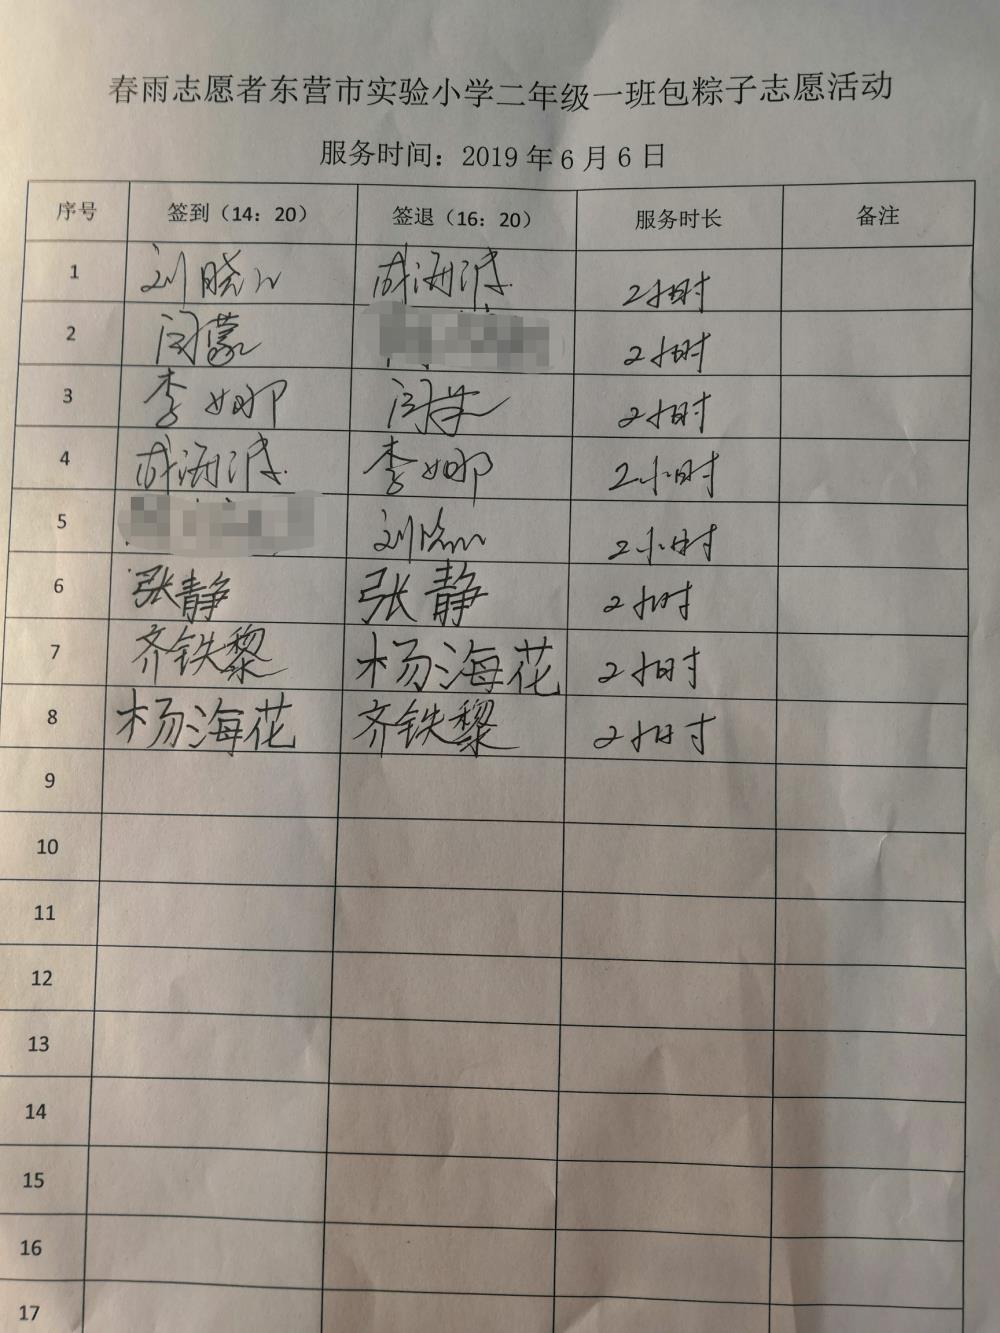 春雨志愿者东营市实验小学二年级一班包粽子志愿活动
服务时间：2019年6月6日
序号 签到（14：20） 签退（16：20） 服务时长 备注
1 刘晓 2小时
2 闫蒙 2小时
3 李娜 闫蒙 2小时
4 李娜 2小时
5 刘晓 2小时
6 张静 张静 2小时
7 齐铁黎 杨海花 2小时
8 杨海花 齐铁黎 2小时
9
10
11
12
13
14
15
16
17